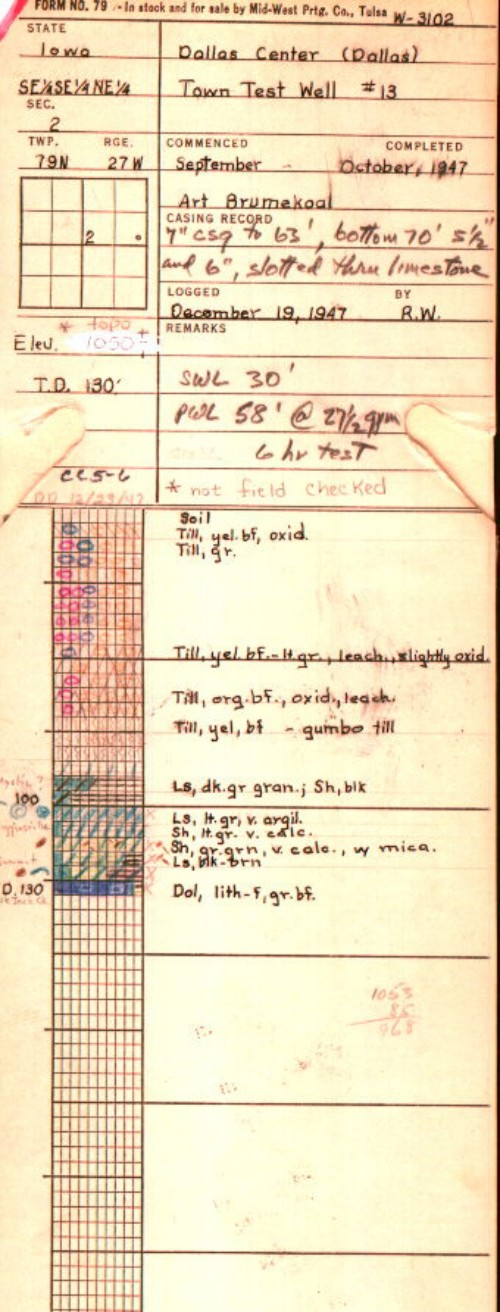 FORM NO. 79 - In stock and for sale by Mid-West Prtg. Co., Tulsa W-3102
STATE
Iowa
Dallas Center (Dallas)
SE¼SE¼NE¼
Town Test Well #13
SEC.
2
TWP. RGE.
79N 27W
COMMENCED COMPLETED
September - October, 1947
Art Brumekool
CASING RECORD
7" csg to 63', bottom 70' 5½"
and 6", slotted thru limestone
2
LOGGED BY
December 19, 1947 R.W.
REMARKS
* topo
Elev. 1050±
T.D. 130'
SWL 30'
PWL 58' @ 27½ gpm
6 hr test
CC5-6
DD 12/29/47
* not field checked
Soil
Till, yel. bf, oxid.
Till, gr.
Till, yel. bf.-lt. gr., leach., slightly oxid.
Till, org. bf., oxid., leach.
Till, yel, bf - gumbo till
Ls, dk. gr gran.; Sh, blk
100
Ls, lt. gr, v. argil.
Sh, lt. gr. v. calc.
Sh, gr. grn, v. calc., w mica.
Ls, blk-brn
D. 130
Dol, lith-f, gr. bf.
1053
85
968